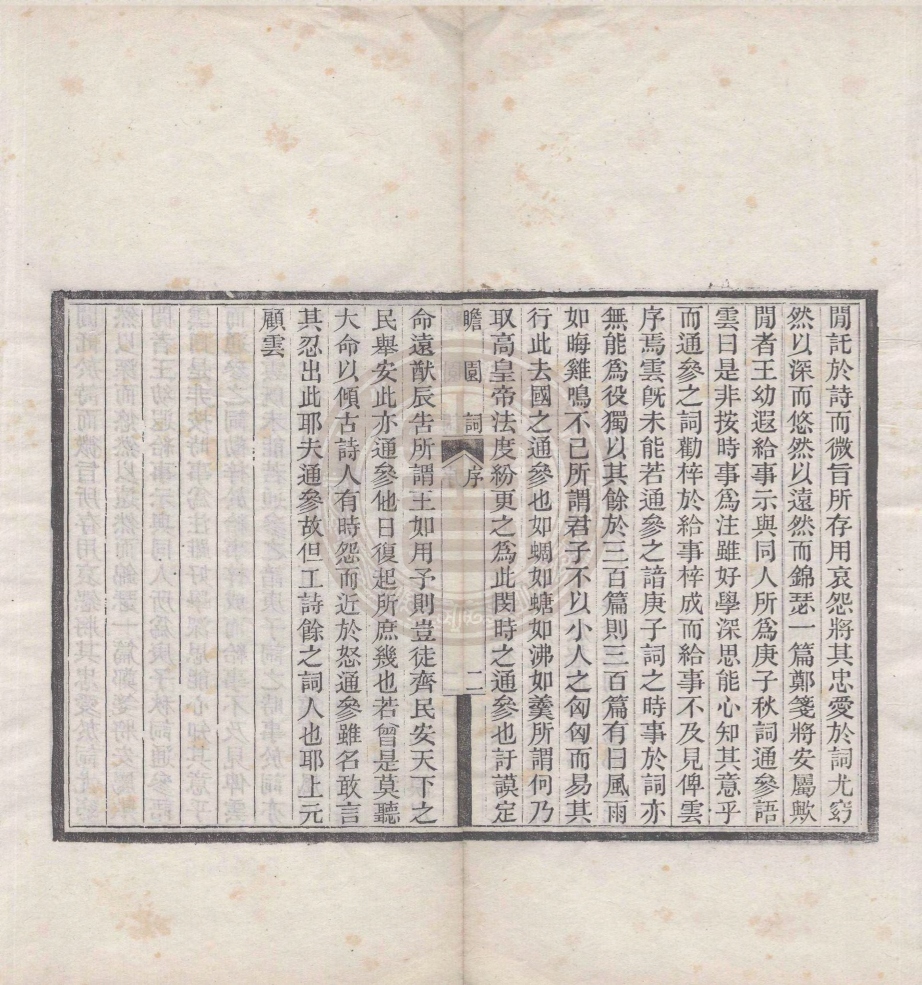 閒託於詩而微旨所存用哀怨將其忠愛於詞尤窈
然以深而悠然以遠然而錦瑟一篇鄭箋將安屬歟
閒者王幼遐給事示與同人所爲庚子秋詞通參語
雲曰是非按時事爲注雖好學深思能心知其意乎
而通參之詞勸梓於給事梓成而給事不及見俾雲
序焉雲旣未能若通參之諳庚子詞之時事於詞亦
無能爲役獨以其餘於三百篇則三百篇有曰風雨
如晦雞鳴不已所謂君子不以小人之匈匈而易其
行此去國之通參也如蜩如螗如沸如羹所謂何乃
取高皇帝法度紛更之爲此閔時之通參也訏謨定
瞻園詞 序 二
命遠猷辰告所謂王如用予則豈徒齊民安天下之
民舉安此亦通參他日復起所庶幾也若曾是莫聽
大命以傾古詩人有時怨而近於怒通參雖名敢言
其忍出此耶夫通參故但工詩餘之詞人也耶上元
顧雲